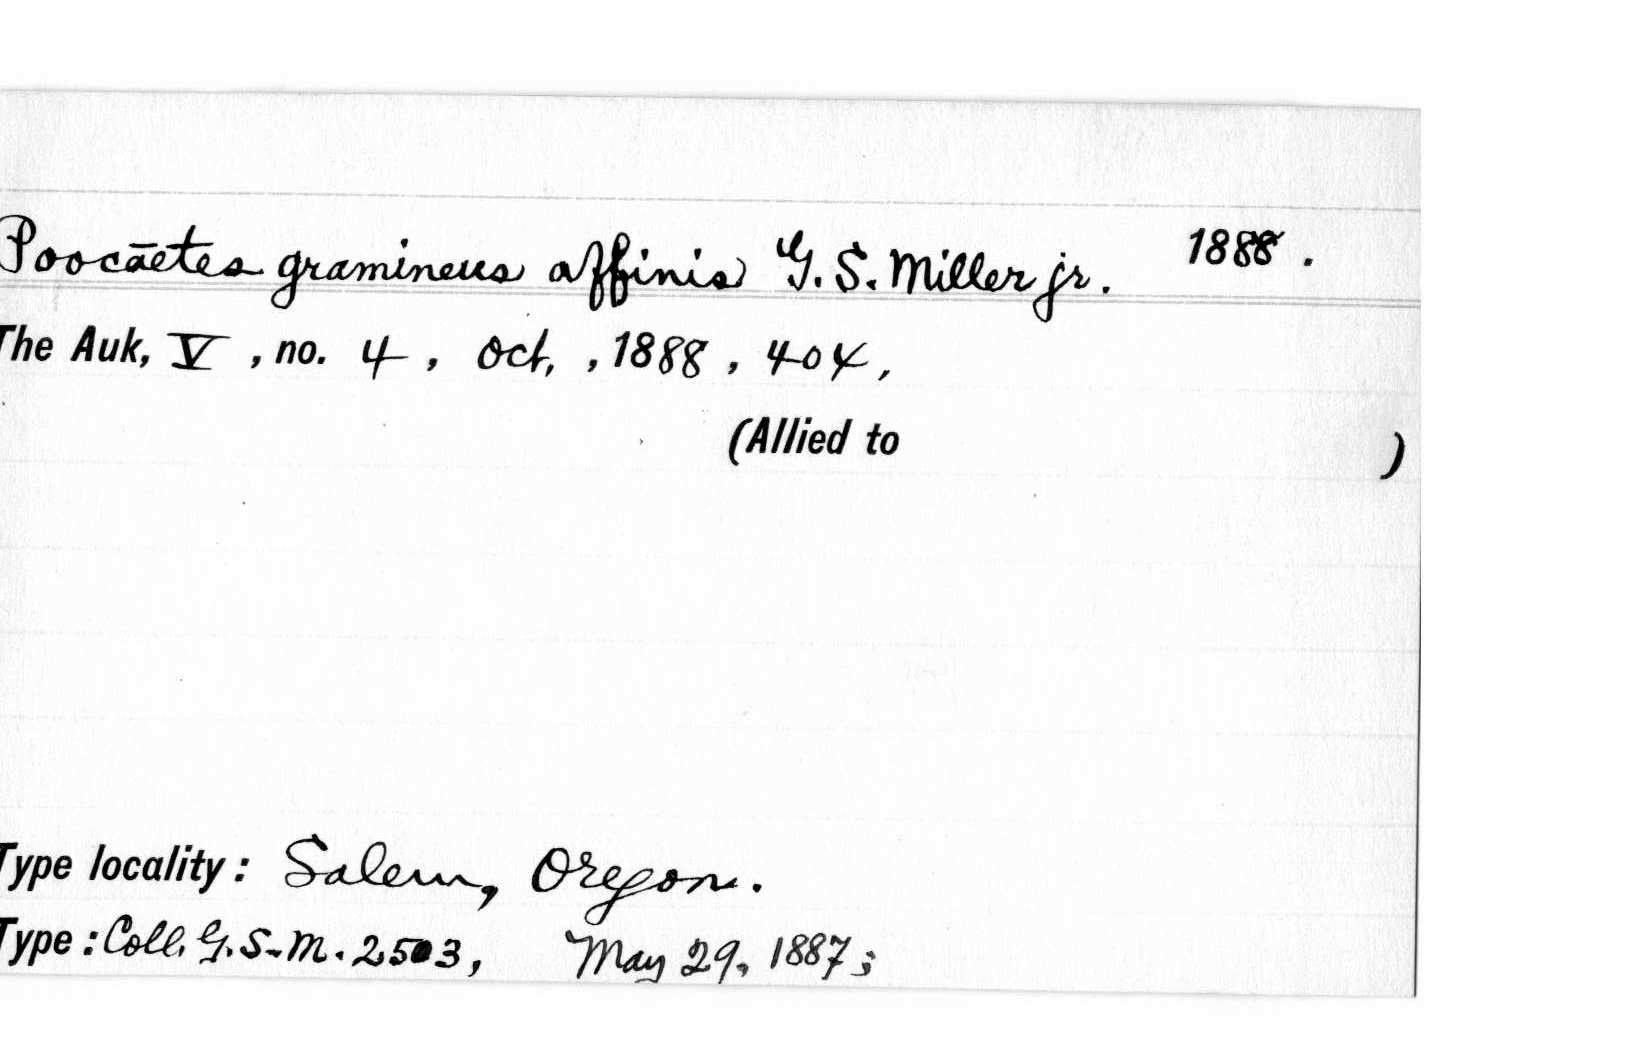 Poocāetes gramineus affinis G. S. Miller jr. 1888.
The Auk, V, no. 4, Oct., 1888, 404,
(Allied to )
Type locality: Salem, Oregon.
Type: Coll. G. S. M. 2503, May 29, 1887;